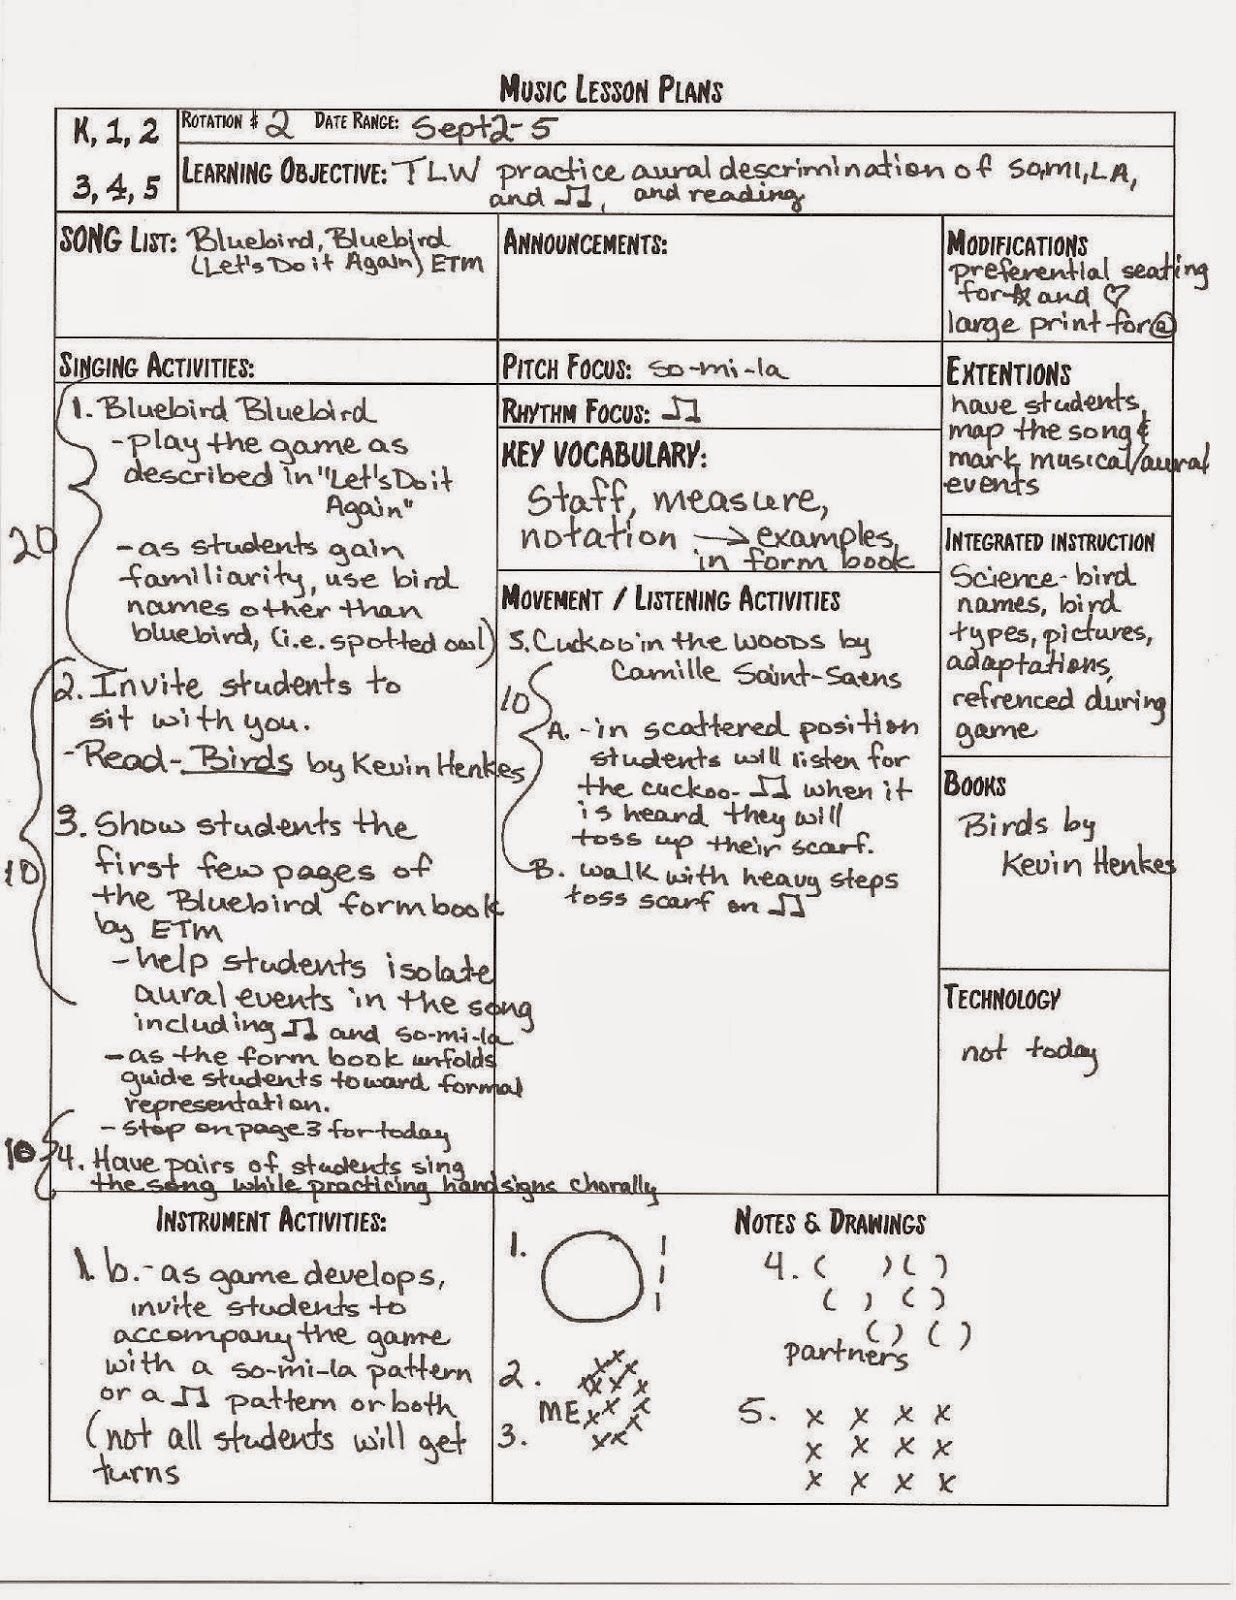 MUSIC LESSON PLANS
K, 1, 2
3, 4, 5
ROTATION # 2 DATE RANGE: Sept 2-5
LEARNING OBJECTIVE: TLW practice aural descrimination of SO,MI,LA,
and ♫, and reading
SONG LIST: Bluebird, Bluebird
(Let's Do it Again) ETM
ANNOUNCEMENTS:
MODIFICATIONS
preferential seating
for ☆ and ♡
large print for @
SINGING ACTIVITIES:
20
1. Bluebird Bluebird
- play the game as
described in "Let's Do it
Again"
- as students gain
familiarity, use bird
names other than
bluebird, (i.e. spotted owl)
10
2. Invite students to
sit with you.
- Read - Birds by Kevin Henkes
3. Show students the
first few pages of
the Bluebird form book
by ETM
- help students isolate
aural events in the song
including ♫ and so-mi-la
- as the form book unfolds
guide students toward formal
representation.
- stop on page 3 for today
10
4. Have pairs of students sing
the song while practicing handsigns chorally
PITCH FOCUS: so-mi-la
RHYTHM FOCUS: ♫
KEY VOCABULARY:
Staff, measure,
notation → examples
in form book
MOVEMENT / LISTENING ACTIVITIES
5. Cuckoo in the Woods by
Camille Saint-Saens
10
A. - in scattered position
students will listen for
the cuckoo- ♫ when it
is heard they will
toss up their scarf.
B. walk with heavy steps
toss scarf on ♫
EXTENTIONS
have students
map the song &
mark musical/aural
events
INTEGRATED INSTRUCTION
Science - bird
names, bird
types, pictures,
adaptations,
refrenced during
game
BOOKS
Birds by
Kevin Henkes
TECHNOLOGY
not today
INSTRUMENT ACTIVITIES:
1. b. - as game develops,
invite students to
accompany the game
with a so-mi-la pattern
or a ♫ pattern or both
(not all students will get
turns
NOTES & DRAWINGS
1.
2.
ME
3.
4. ( ) ( )
( ) ( )
( ) ( )
partners
5. x x x x
x x x x
x x x x